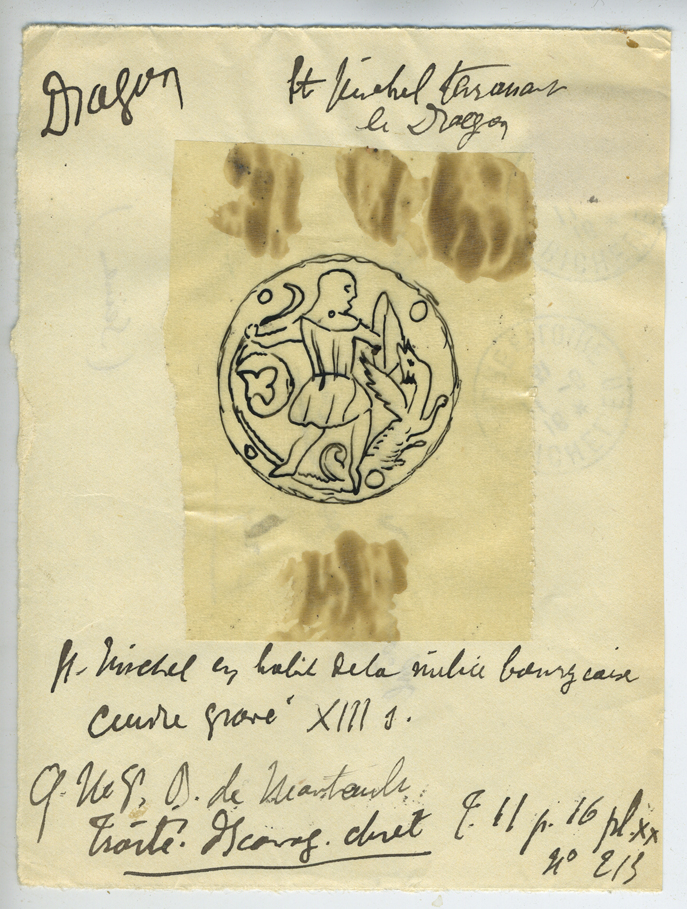 Dragon
St Michel terrassant
le Dragon
St. Michel en habit de la milice bourgeoise
Cuivre gravé XIII s.
Cf. Mgr. B. de Montault
Traité. d'Iconog. chret T. II p. 16 pl. XX
n° 213